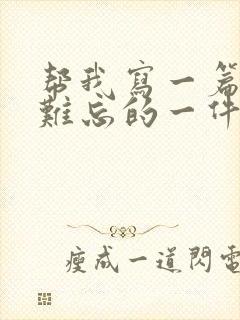 帮我寫一篇
難忘的一件
瘦成一道閃電